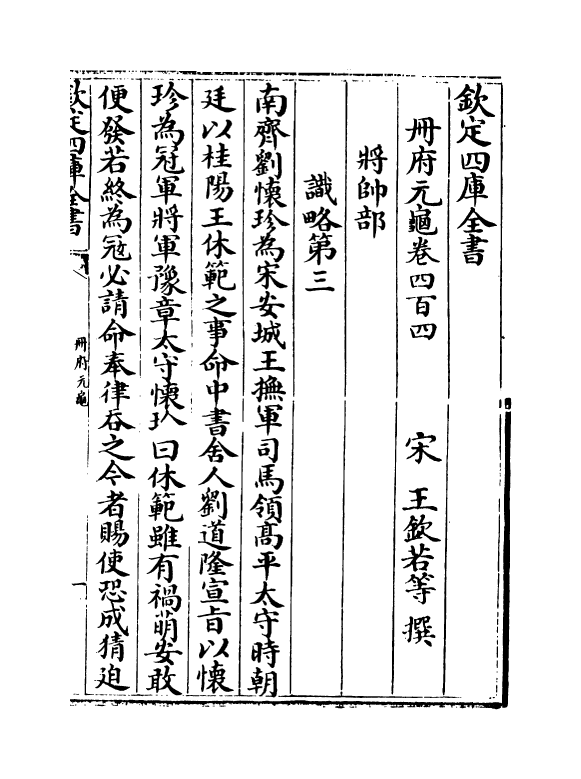 欽定四庫全書
冊府元龜卷四百四
宋 王欽若等 撰
將帥部
識略第三
南齊劉懷珍為宋安城王撫軍司馬領髙平太守時朝
廷以桂陽王休範之事命中書舍人劉道隆宣旨以懷
珍為冠軍將軍豫章太守懷珍曰休範雖有禍萌安敢
便發若終為冦必請命奉律吞之今者賜使恐成猜迫
欽定四庫全書
冊府元龜
一